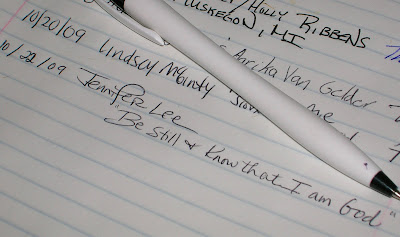 Holly Ribbens
Muskegon, MI
10/20/09 Lindsey McGinty
Annika Van Gelder
me
10/22/09 Jennifer Lee
"Be still & Know that I am God"